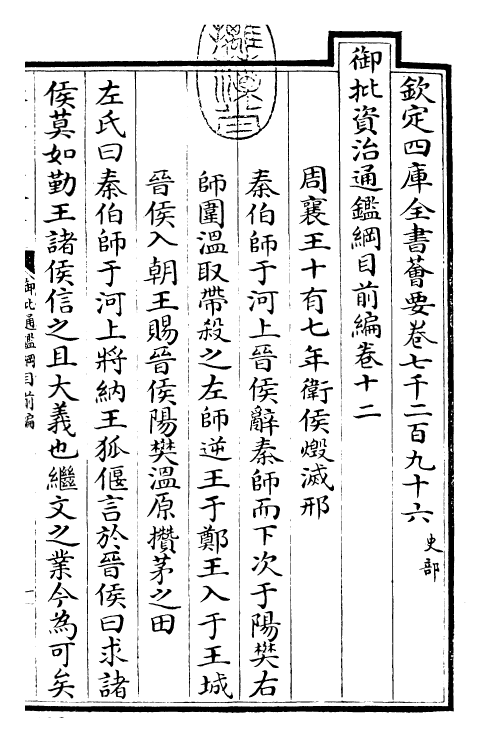 欽定四庫全書薈要卷七千二百九十六 史部
御批資治通鑑綱目前編卷十二
周襄王十有七年衛侯燬滅邢
秦伯師于河上晉侯辭秦師而下次于陽樊右
師圍溫取帶殺之左師逆王于鄭王入于王城
晉侯入朝王賜晉侯陽樊溫原攢茅之田
左氏曰秦伯師于河上將納王狐偃言於晉侯曰求諸
侯莫如勤王諸侯信之且大義也繼文之業今為可矣
御批通鑑綱目前編